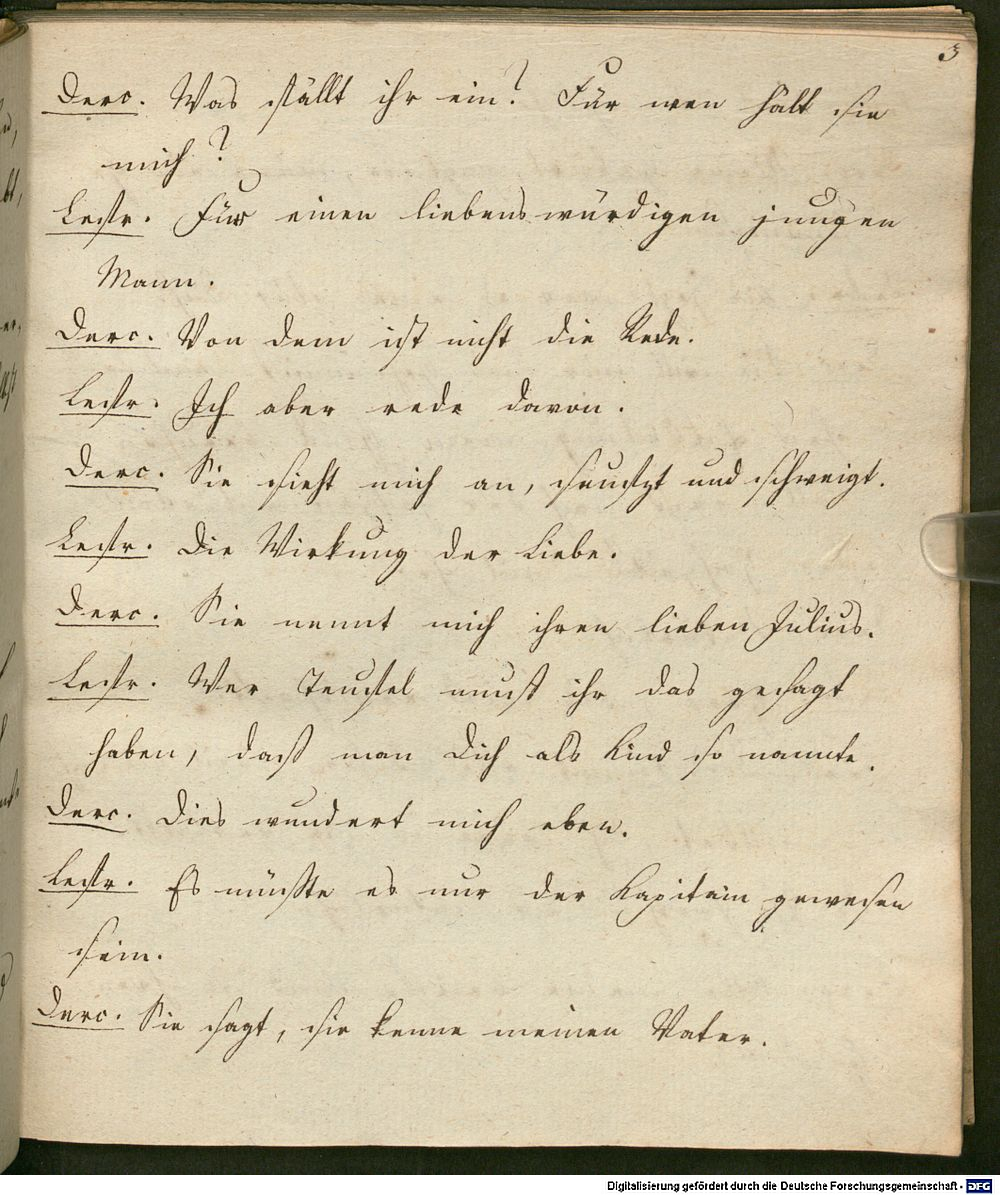 3
Derc. Was fällt ihr ein? Für wen hält sie
mich?
Lestr. Für einen liebenswürdigen jungen
Mann.
Derc. Von dem ist nicht die Rede.
Lestr. Ich aber rede davon.
Derc. Sie sieht mich an, seufzt und schweigt.
Lestr. Die Wirkung der Liebe.
Derc. Sie nennt mich ihren lieben Julius.
Lestr. Wer Teufel muß ihr das gesagt
haben, daß man Dich als Kind so nannte.
Derc. Dies wundert mich eben.
Lestr. Es müßte es nur der Kapitain gewesen
sein.
Derc. Sie sagt, sie kenne meinen Vater.
Digitalisierung gefördert durch die Deutsche Forschungsgemeinschaft - DFG